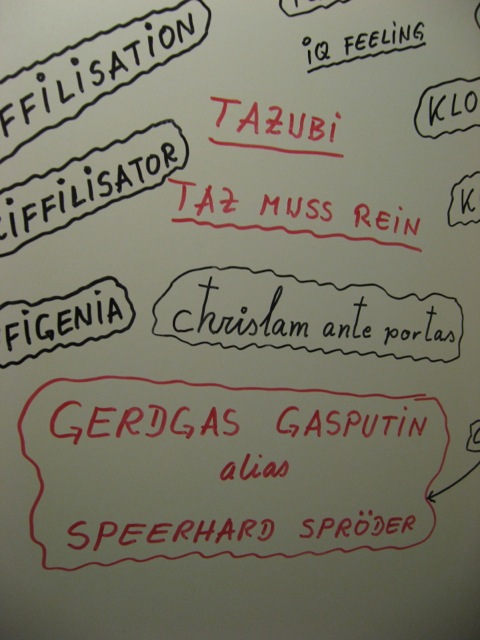 FFILISATION
iQ FEELiNG
KLO
TAZUBi
iFFILISATOR
TAZ MUSS REiN
FiGENiA
chrislam ante portas
GERDGAS GASPUTiN
alias
SPEERHARD SPRÖDER